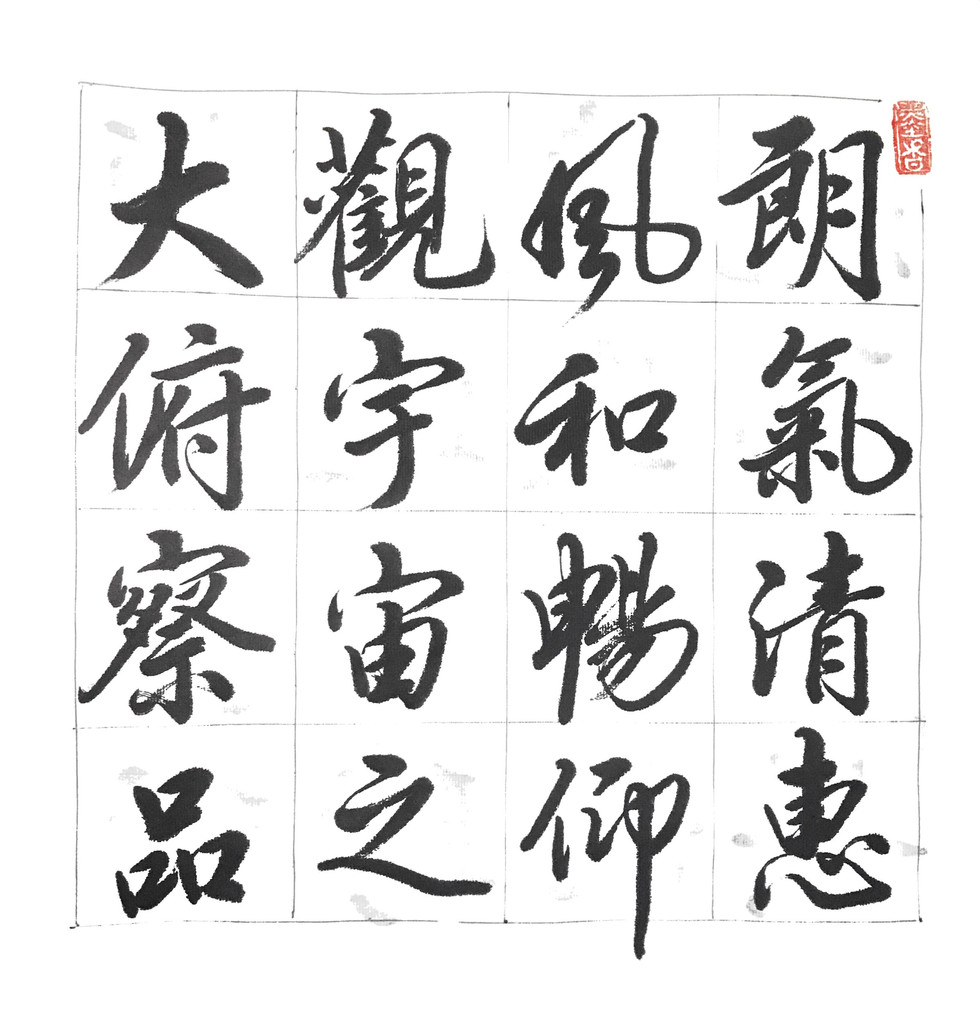 朗氣清惠
風和暢仰
觀宇宙之
大俯察品